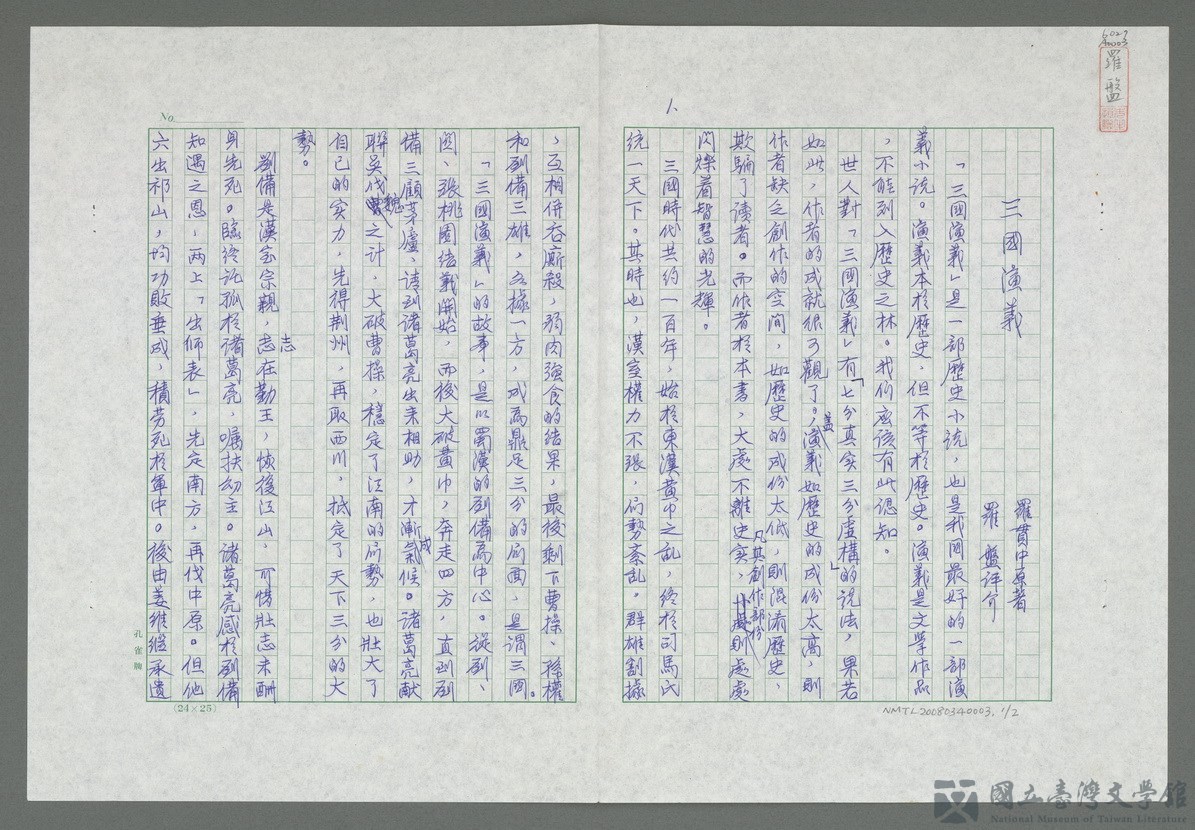 羅盤
1.
三國演義
羅貫中原著
羅 盤評介
「三國演義」是一部歷史小說，也是我國最好的一部演
義小說。演義本於歷史，但不等於歷史。演義是文學作品
，不能列入歷史之林。我們應該有此認知。
世人對「三國演義」有「七分真实三分虛構」的說法，果若
如此，作者的成就很可觀了。蓋演義如歷史的成份太高，則
作者缺乏創作的空间，如歷史的成份太低，則混淆歷史、
欺騙了读者。而作者於本書，大處不離史实，凡其創作部份則處處
闪爍着智慧的光輝。
三國時代共約一百年，始於東漢黃巾之亂，終於司馬氏
統一天下。其時也，漢室權力不張，局勢紊乱。群雄割據
，互相併吞廝殺，弱肉強食的结果，最後剩下曹操、孫權
和刘備三雄，各據一方，成為鼎足三分的局面，是谓三國。
「三國演義」的故事，是以蜀漢的刘備為中心。從刘、
関、張桃园结義開始，而後大破黃巾，奔走四方，直到刘
備三顧茅廬、请到诸葛亮出来相助，才漸成氣候。诸葛亮献
聯吳伐魏之计，大破曹操，穩定了江南的局勢，也壯大了
自己的实力，先得荆州，再取西川，抵定了天下三分的大
勢。
劉備是漢室宗親，志在勤王，恢復江山，可惜壯志未酬
身先死。臨終託孤於诸葛亮，嘱扶幼主。诸葛亮感於刘備
知遇之恩，两上「出师表」，先定南方，再伐中原。但他
六出祁山，均功敗垂成，積劳死於軍中。後由姜维继承遗
No.
(24×25)
孔雀牌
NMTL20080340003. 1/2
國立臺灣文學館
National Museum of Taiwan Literature